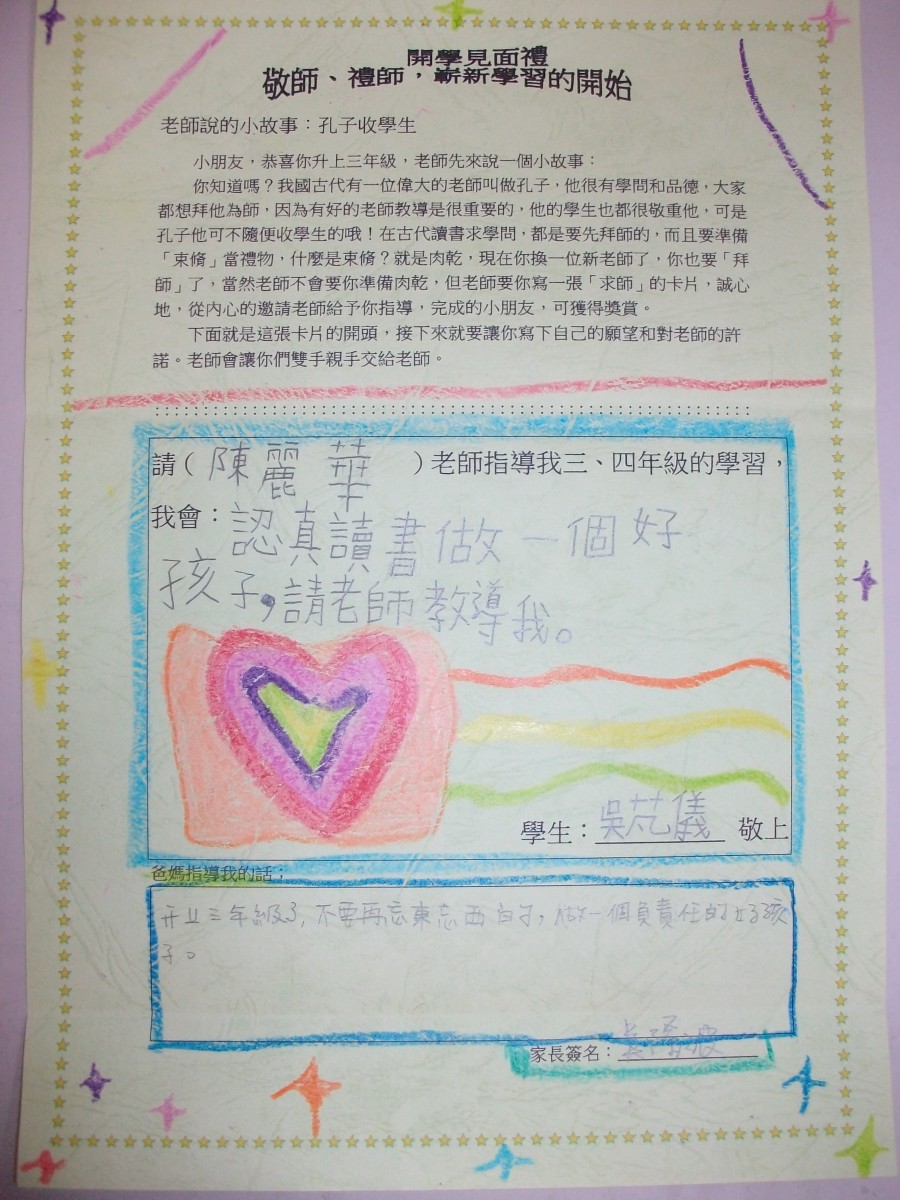 開學見面禮
敬師、禮師，嶄新學習的開始
老師說的小故事：孔子收學生
小朋友，恭喜你升上三年級，老師先來說一個小故事：
你知道嗎？我國古代有一位偉大的老師叫做孔子，他很有學問和品德，大家
都想拜他為師，因為有好的老師教導是很重要的，他的學生也都很敬重他，可是
孔子他可不隨便收學生的哦！在古代讀書求學問，都是要先拜師的，而且要準備
「束脩」當禮物，什麼是束脩？就是肉乾，現在你換一位新老師了，你也要「拜
師」了，當然老師不會要你準備肉乾，但老師要你寫一張「求師」的卡片，誠心
地，從內心的邀請老師給予你指導，完成的小朋友，可獲得獎賞。
下面就是這張卡片的開頭，接下來就要讓你寫下自己的願望和對老師的許
諾。老師會讓你們雙手親手交給老師。
請（陳麗華）老師指導我三、四年級的學習，
我會：認真讀書做一個好
孩子，請老師教導我。
學生：吳芃儀 敬上
爸媽指導我的話：
升上三年級了，不要再忘東忘西的，做一個負責任的好孩
子。
家長簽名：